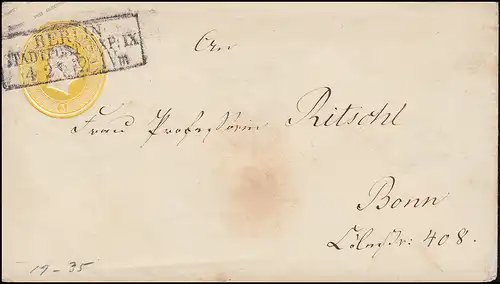 BERLIN
STADTPOST-EXP: IX
4 2
An
Frau Professorin Ritschl
Bonn
Cölnstr: 408.
19-35